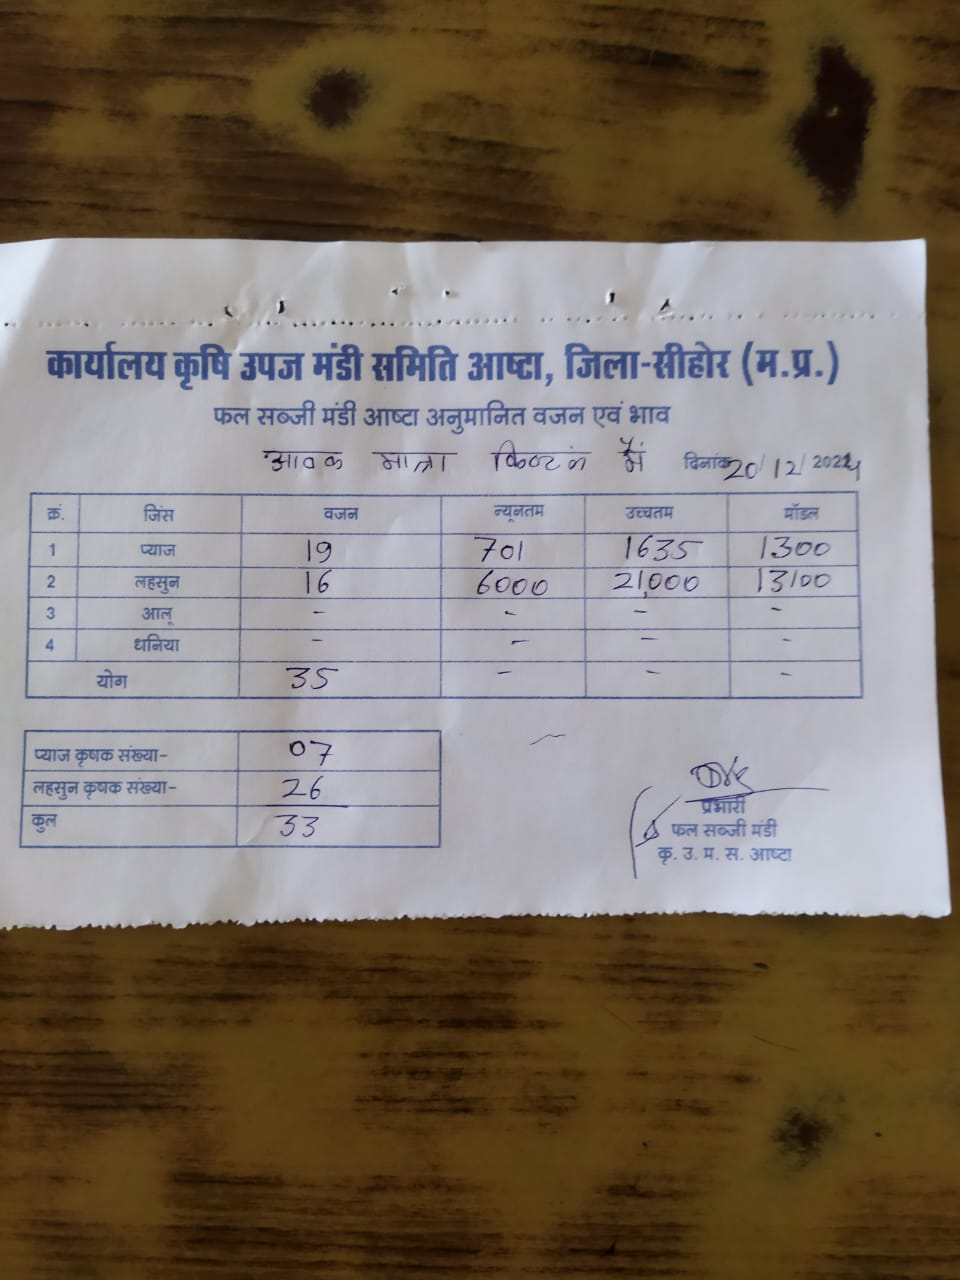 कार्यालय कृषि उपज मंडी समिति आष्टा, जिला-सीहोर (म.प्र.)
फल सब्जी मंडी आष्टा अनुमानित वजन एवं भाव
आवक मात्रा क्विटंल में दिनांक 20/12/2024
क्रं. जिंस वजन न्यूनतम उच्चतम मॉडल
1 प्याज 19 701 1635 1300
2 लहसुन 16 6000 21,000 13100
3 आलू - - - -
4 धनिया - - - -
योग 35 - - -
प्याज कृषक संख्या- 07
लहसुन कृषक संख्या- 26
कुल 33
प्रभारी
फल सब्जी मंडी
कृ. उ. म. स. आष्टा